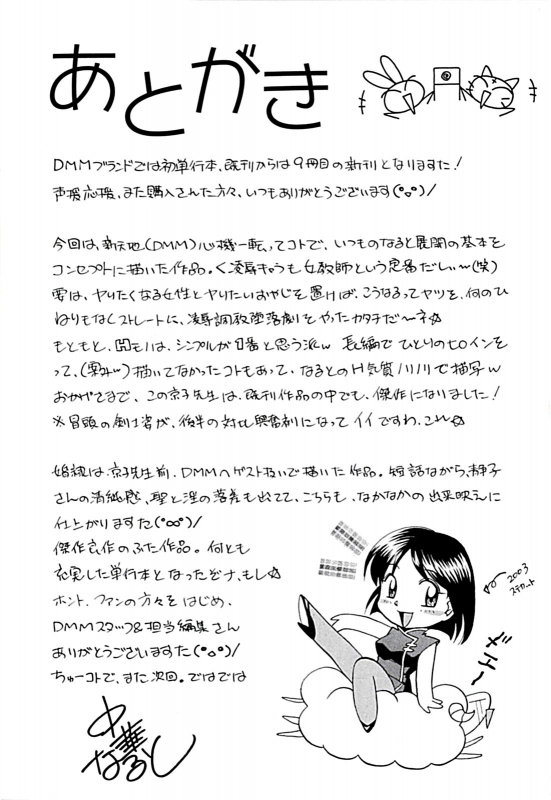 あとがき
DMMブランドでは初単行本、既刊からは9冊目の新刊となりますた!
声援応援、また購入された方々、いつもありがとうございます(°▽°)/
今回は、新天地(DMM)心機一転ってコトで、いつものなると展開の基本を
コンセプトに描いた作品。く凌辱キャラも女教師という定番だしぃ〜(笑)
要は、ヤりたくなる女性とヤりたいおやじを置けば、こうなるってヤツを、何のひ
ねりもなくストレートに、凌辱調教堕落劇をやったカタチだ〜ネ☆
もともと、Hモノは、シンプルが1番と思う派w 長編でひとりのヒロインを
って、(案外w)描いてなかったコトもあって、なるとのH気質ノリノリで描写w
おかげさまで、この京子先生は、既刊作品の中でも、傑作になりました!
※冒頭の剣士姿が、後半の対比興奮剤になってイイですわ、これ☆
婚級は、京子先生前、DMMへゲスト扱いで描いた作品。短話ながら、静子
さんの清純感、聖と淫の落差も出てて、こちらも、なかなかの出来映えに
仕上がりますた(°∞°)/
傑作良作のふた作品。何とも
充実した単行本となったぞナ、もし☆
ホント、ファンの方々をはじめ、
DMMスタッフ&担当編集さん
ありがとうございますた(°▽°)/
ちゅーコトで、また次回。ではでは
中華なると
2003
メエ〜